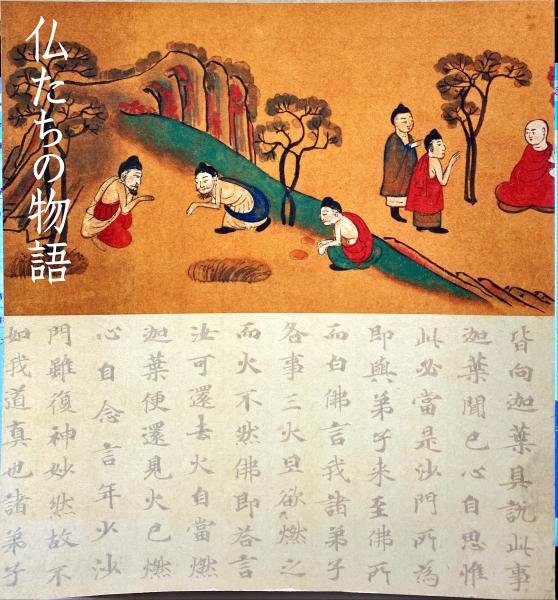 仏たちの物語
皆向迦葉具説此事
迦葉聞已心自思惟
此必當是沙門所為
即與弟子来至佛所
而白佛言我諸弟子
各事三火旦欲燃之
而火不然佛即答言
汝可還去火自當燃
迦葉便還見火已燃
心自念言年少沙
門雖復神妙然故不
如我道真也諸弟子